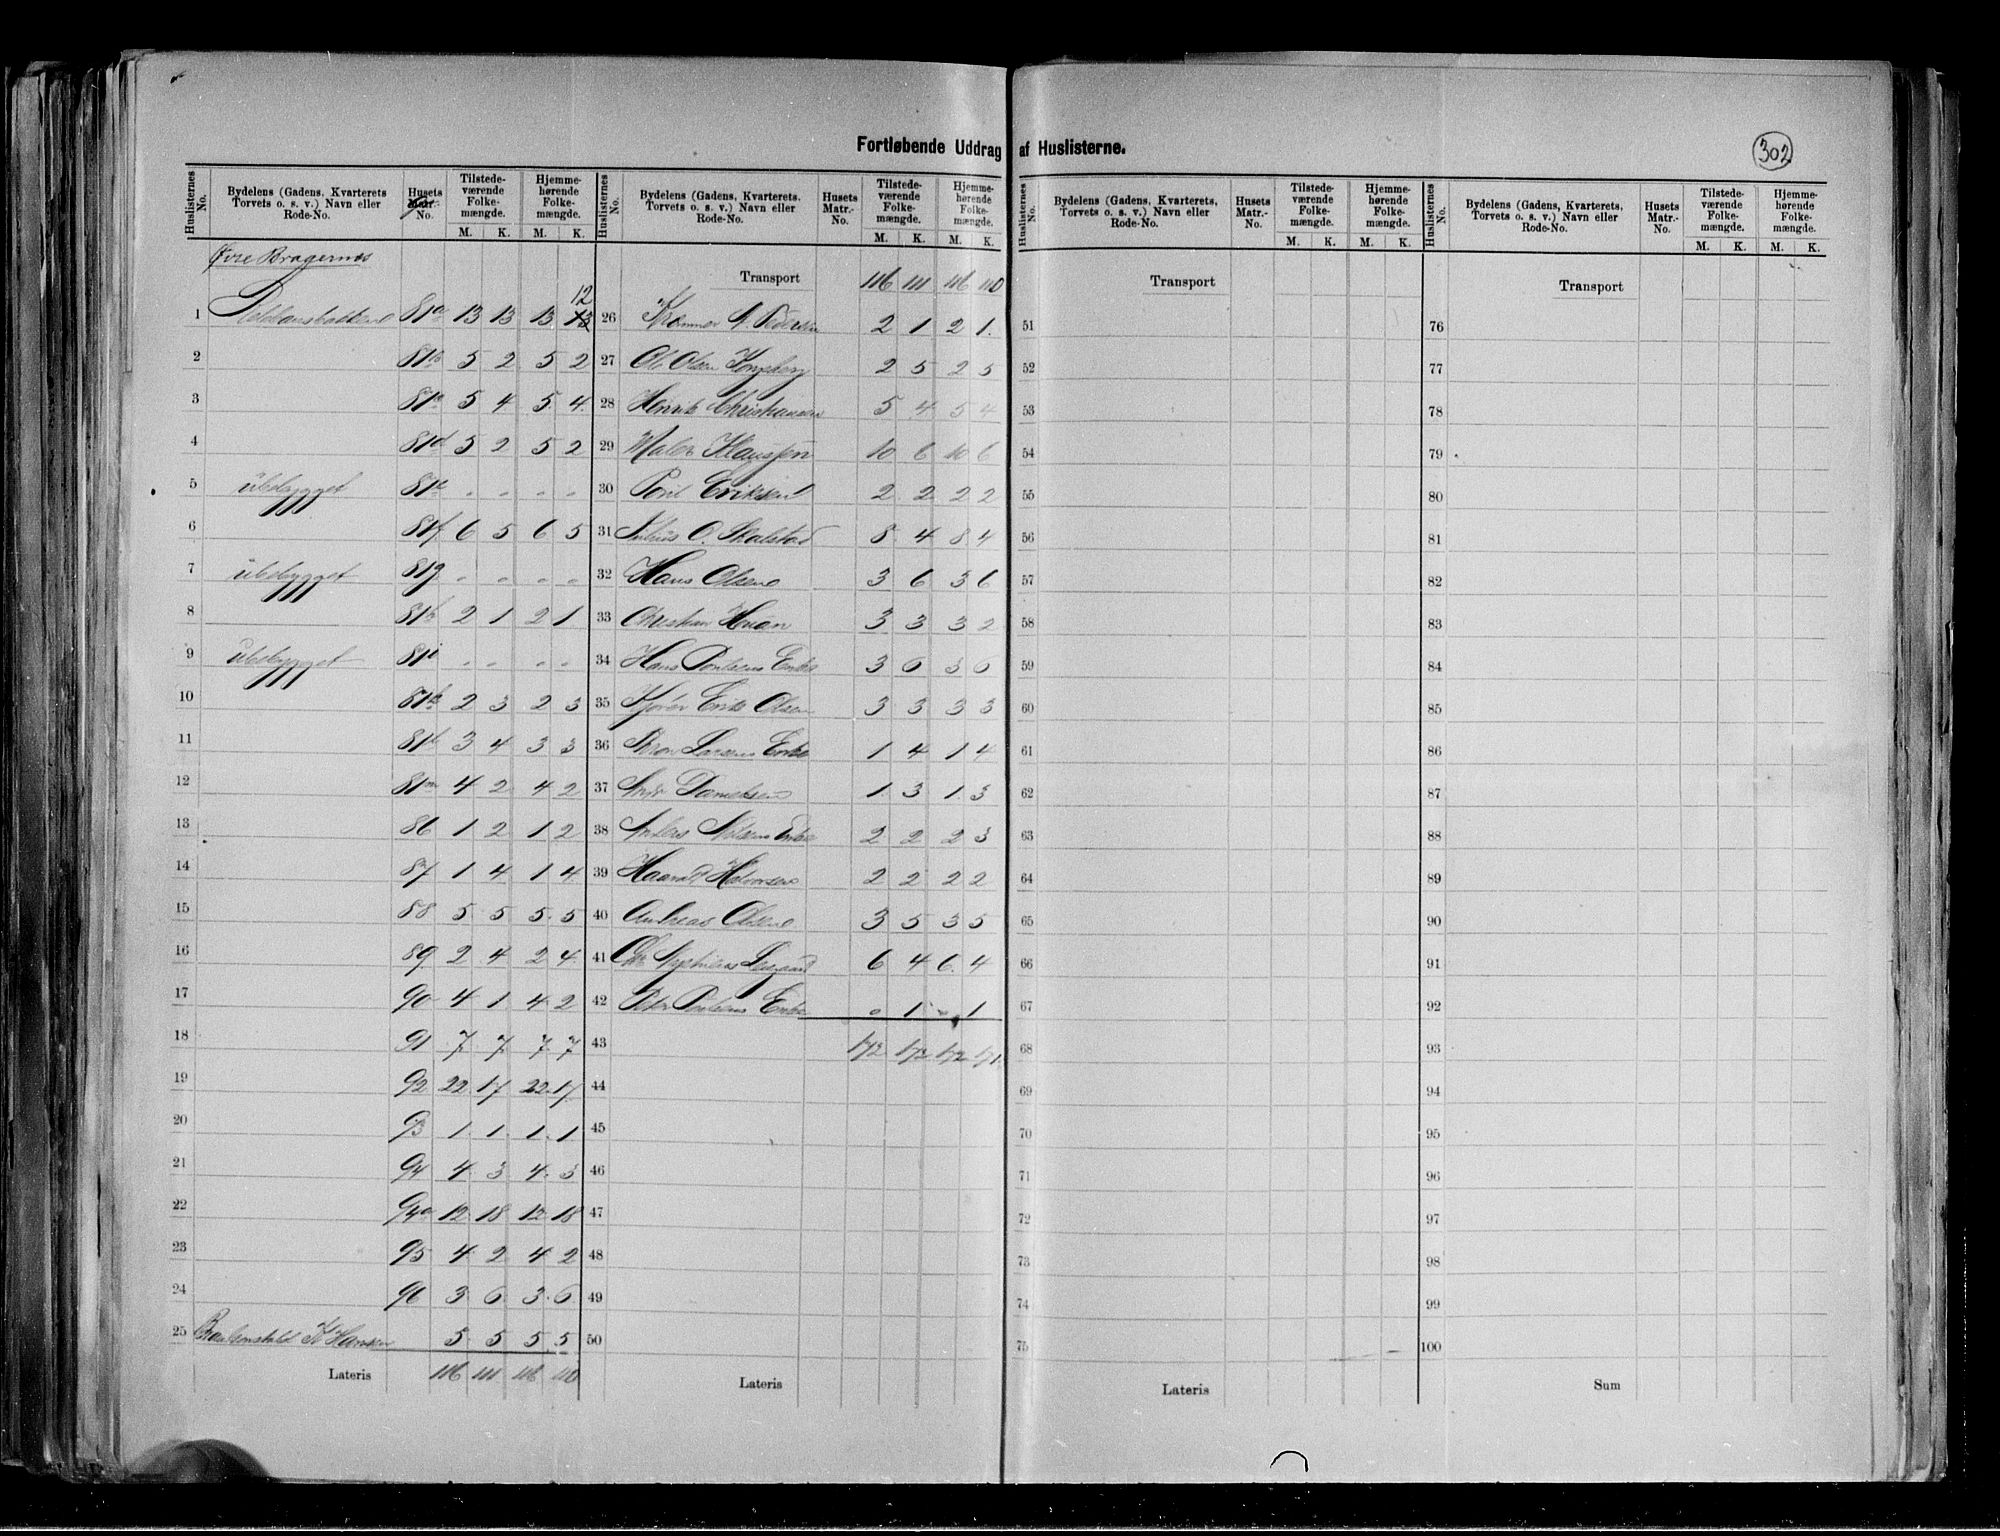 Fortløbende Uddrag af Huslisterne.
302
Huslisternes No. | Bydelens (Gadens, Kvarterets Torvets o. s. v.) Navn eller Rode-No. | Husets Matr.-No. | Tilstede-værende Folke-mængde. M. K. | Hjemme-hørende Folke-mængde. M. K.
Øvre Bragernæs
1 81a 13 13 13 12
2 81b 5 2 5 2
3 81c 5 4 5 4
4 81d 5 2 5 2
5 ubebygget 81e " " " "
6 81f 6 5 6 5
7 ubebygget 81g " " " "
8 81h 2 1 2 1
9 ubebygget 81i " " " "
10 81k 2 3 2 3
11 81l 3 4 3 3
12 81m 4 2 4 2
13 86 1 2 1 2
14 87 1 4 1 4
15 88 5 5 5 5
16 89 2 4 2 4
17 90 4 1 4 2
18 91 7 7 7 7
19 92 22 17 22 17
20 93 1 1 1 1
21 94 4 3 4 3
22 94a 12 18 12 18
23 95 4 2 4 2
24 96 3 6 3 6
25 Hansen 5 5 5 5
Lateris 116 111 116 110
Huslisternes No. | Bydelens (Gadens, Kvarterets, Torvets o. s. v.) Navn eller Rode-No. | Husets Matr.-No. | Tilstede-værende Folke-mængde. M. K. | Hjemme-hørende Folke-mængde. M. K.
Transport 116 111 116 110
26 Pedersen 2 1 2 1
27 Ole Olsen Kongsberg 2 5 2 5
28 Henrik Christiansen 5 4 5 4
29 Maler Klausen 10 6 10 6
30 Poul Eriksen 2 2 2 2
31 Julius O. Skalstad 8 4 8 4
32 Hans Olsen 3 6 3 6
33 Christian Hvian 3 3 3 2
34 Hans Poulsens Enke 3 6 3 6
35 Erik Olsen 3 3 3 3
36 Larsens Enke 1 4 1 4
37 Danielsen 1 3 1 3
38 Anders Nilsens Enke 2 2 2 3
39 Halvorsen 2 2 2 2
40 Andreas Olsen 3 5 3 5
41 6 4 6 4
42 Peter Poulsens Enke " 1 " 1
43 172 172 172 171
44
45
46
47
48
49
50
Lateris
Huslisternes No. | Bydelens (Gadens, Kvarterets, Torvets o. s. v.) Navn eller Rode-No. | Husets Matr.-No. | Tilstede-værende Folke-mængde. M. K. | Hjemme-hørende Folke-mængde. M. K.
Transport
51
52
53
54
55
56
57
58
59
60
61
62
63
64
65
66
67
68
69
70
71
72
73
74
75
Lateris
Huslisternes No. | Bydelens (Gadens, Kvarterets, Torvets o. s. v.) Navn eller Rode-No. | Husets Matr.-No. | Tilstede-værende Folke-mængde. M. K. | Hjemme-hørende Folke-mængde. M. K.
Transport
76
77
78
79
80
81
82
83
84
85
86
87
88
89
90
91
92
93
94
95
96
97
98
99
100
Sum